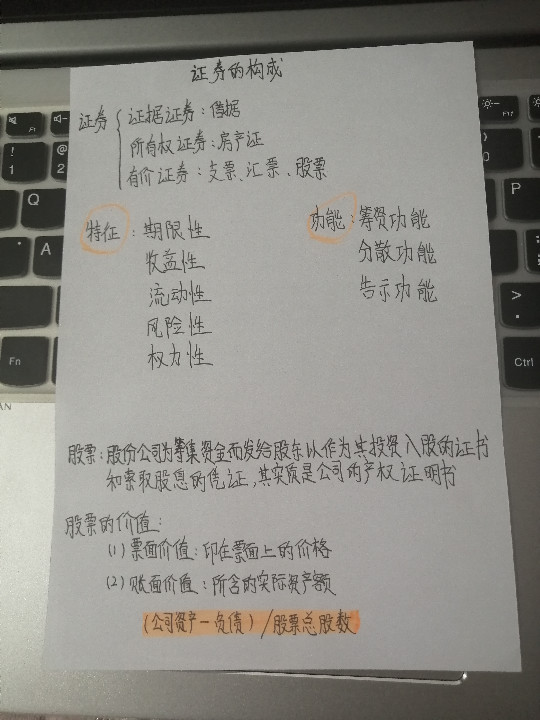 证券的构成
证券
证据证券：借据
所有权证券：房产证
有价证券：支票、汇票、股票
特征：期限性
收益性
流动性
风险性
权力性
功能：筹资功能
分散功能
告示功能
股票：股份公司为筹集资金而发给股东以作为其投资入股的证书
和索取股息的凭证，其实质是公司的产权证明书
股票的价值：
（1）票面价值：印在票面上的价格
（2）账面价值：所含的实际资产额
（公司资产－负债）/股票总股数
F1
!
1
@
2
Q
A
Fn
F11
F12
P
{
[
:
;
>
.
Ctrl